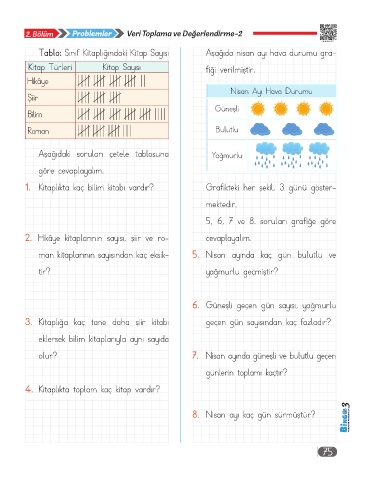 2. Bölüm Problemler Veri Toplama ve Değerlendirme-2
Tablo: Sınıf Kitaplığındaki Kitap Sayısı
Kitap Türleri Kitap Sayısı
Hikâye
Şiir
Bilim
Roman
Aşağıdaki soruları çetele tablosuna
göre cevaplayalım.
1. Kitaplıkta kaç bilim kitabı vardır?
2. Hikâye kitaplarının sayısı, şiir ve ro-
man kitaplarının sayısından kaç eksik-
tir?
3. Kitaplığa kaç tane daha şiir kitabı
eklersek bilim kitaplarıyla aynı sayıda
olur?
4. Kitaplıkta toplam kaç kitap vardır?
Aşağıda nisan ayı hava durumu gra-
fiği verilmiştir.
Nisan Ayı Hava Durumu
Güneşli
Bulutlu
Yağmurlu
Grafikteki her şekil, 3 günü göster-
mektedir.
5, 6, 7 ve 8. soruları grafiğe göre
cevaplayalım.
5. Nisan ayında kaç gün bulutlu ve
yağmurlu geçmiştir?
6. Güneşli geçen gün sayısı, yağmurlu
geçen gün sayısından kaç fazladır?
7. Nisan ayında güneşli ve bulutlu geçen
günlerin toplamı kaçtır?
8. Nisan ayı kaç gün sürmüştür?
75